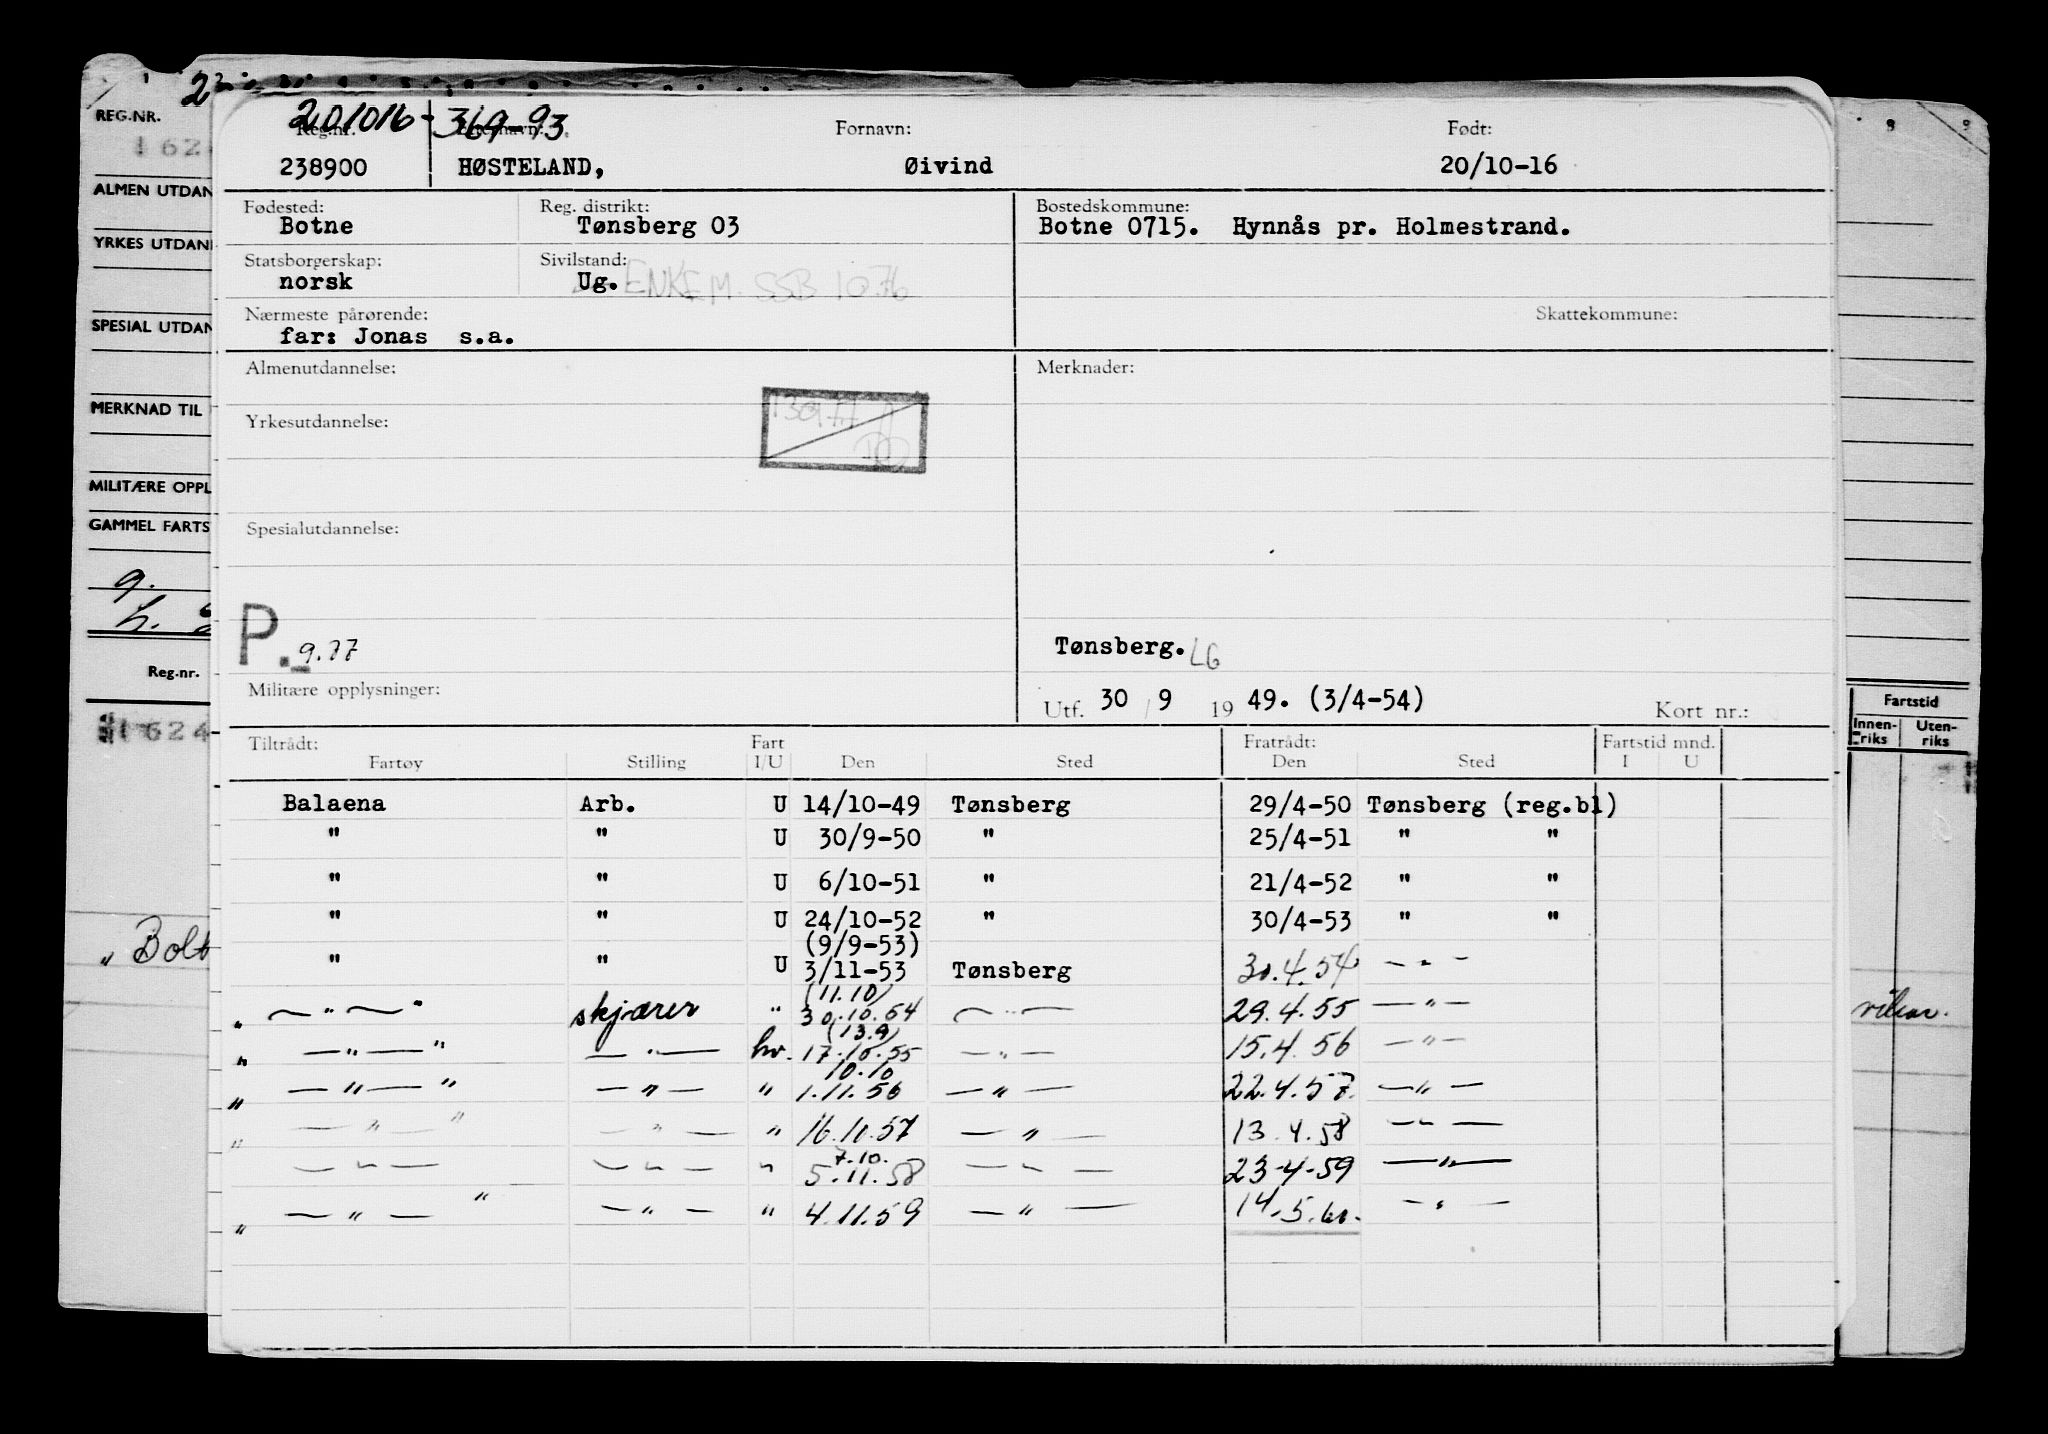 2
REG.NR. 201016-369-93
Reg.nr. Etternavn: Fornavn: Født:
1624 238900 HØSTELAND, Øivind 20/10-16
ALMEN UTDAN
Fødested: Reg. distrikt: Bostedskommune:
Botne Tønsberg 03 Botne 0715. Hynnås pr. Holmestrand.
YRKES UTDAN
Statsborgerskap: Sivilstand:
norsk Ug. ENKEM. SSB 1076
Nærmeste pårørende: Skattekommune:
SPESIAL UTDAN
far: Jonas s.a.
Almenutdannelse: Merknader:
MERKNAD TIL
Yrkesutdannelse:
MILITÆRE OPPL
GAMMEL FARTS
Spesialutdannelse:
P. 9.77
Tønsberg. LG
Reg.nr.
Militære opplysninger: Utf. 30 / 9 19 49. (3/4-54) Kort nr.:
Fartstid
Innen-riks Uten-riks
1624
Tiltrådt: Fart Fratrådt: Fartstid mnd.
Fartøy Stilling I/U Den Sted Den Sted I U
Balaena Arb. U 14/10-49 Tønsberg 29/4-50 Tønsberg (reg.bl)
" " U 30/9-50 " 25/4-51 " "
" " U 6/10-51 " 21/4-52 " "
" " U 24/10-52 " 30/4-53 " "
(9/9-53)
" " U 3/11-53 Tønsberg 30.4.54 — " —
(11.10)
" — " — " skjærer " 30.10.54 — " — 29.4.55 — " —
(13.9)
" — " — " — " — hv. 17.10.55 — " — 15.4.56 — " —
10.10
" — " — " — " — " 1.11.56 — " — 22.4.57. — " —
" — " — " — " — " 16.10.57 — " — 13.4.58 — " —
7.10.
— " — — " — " 5.11.58 — " — 23-4-59 — " —
" — " — " — " — " 4.11.59 — " — 14.5.60. — " —